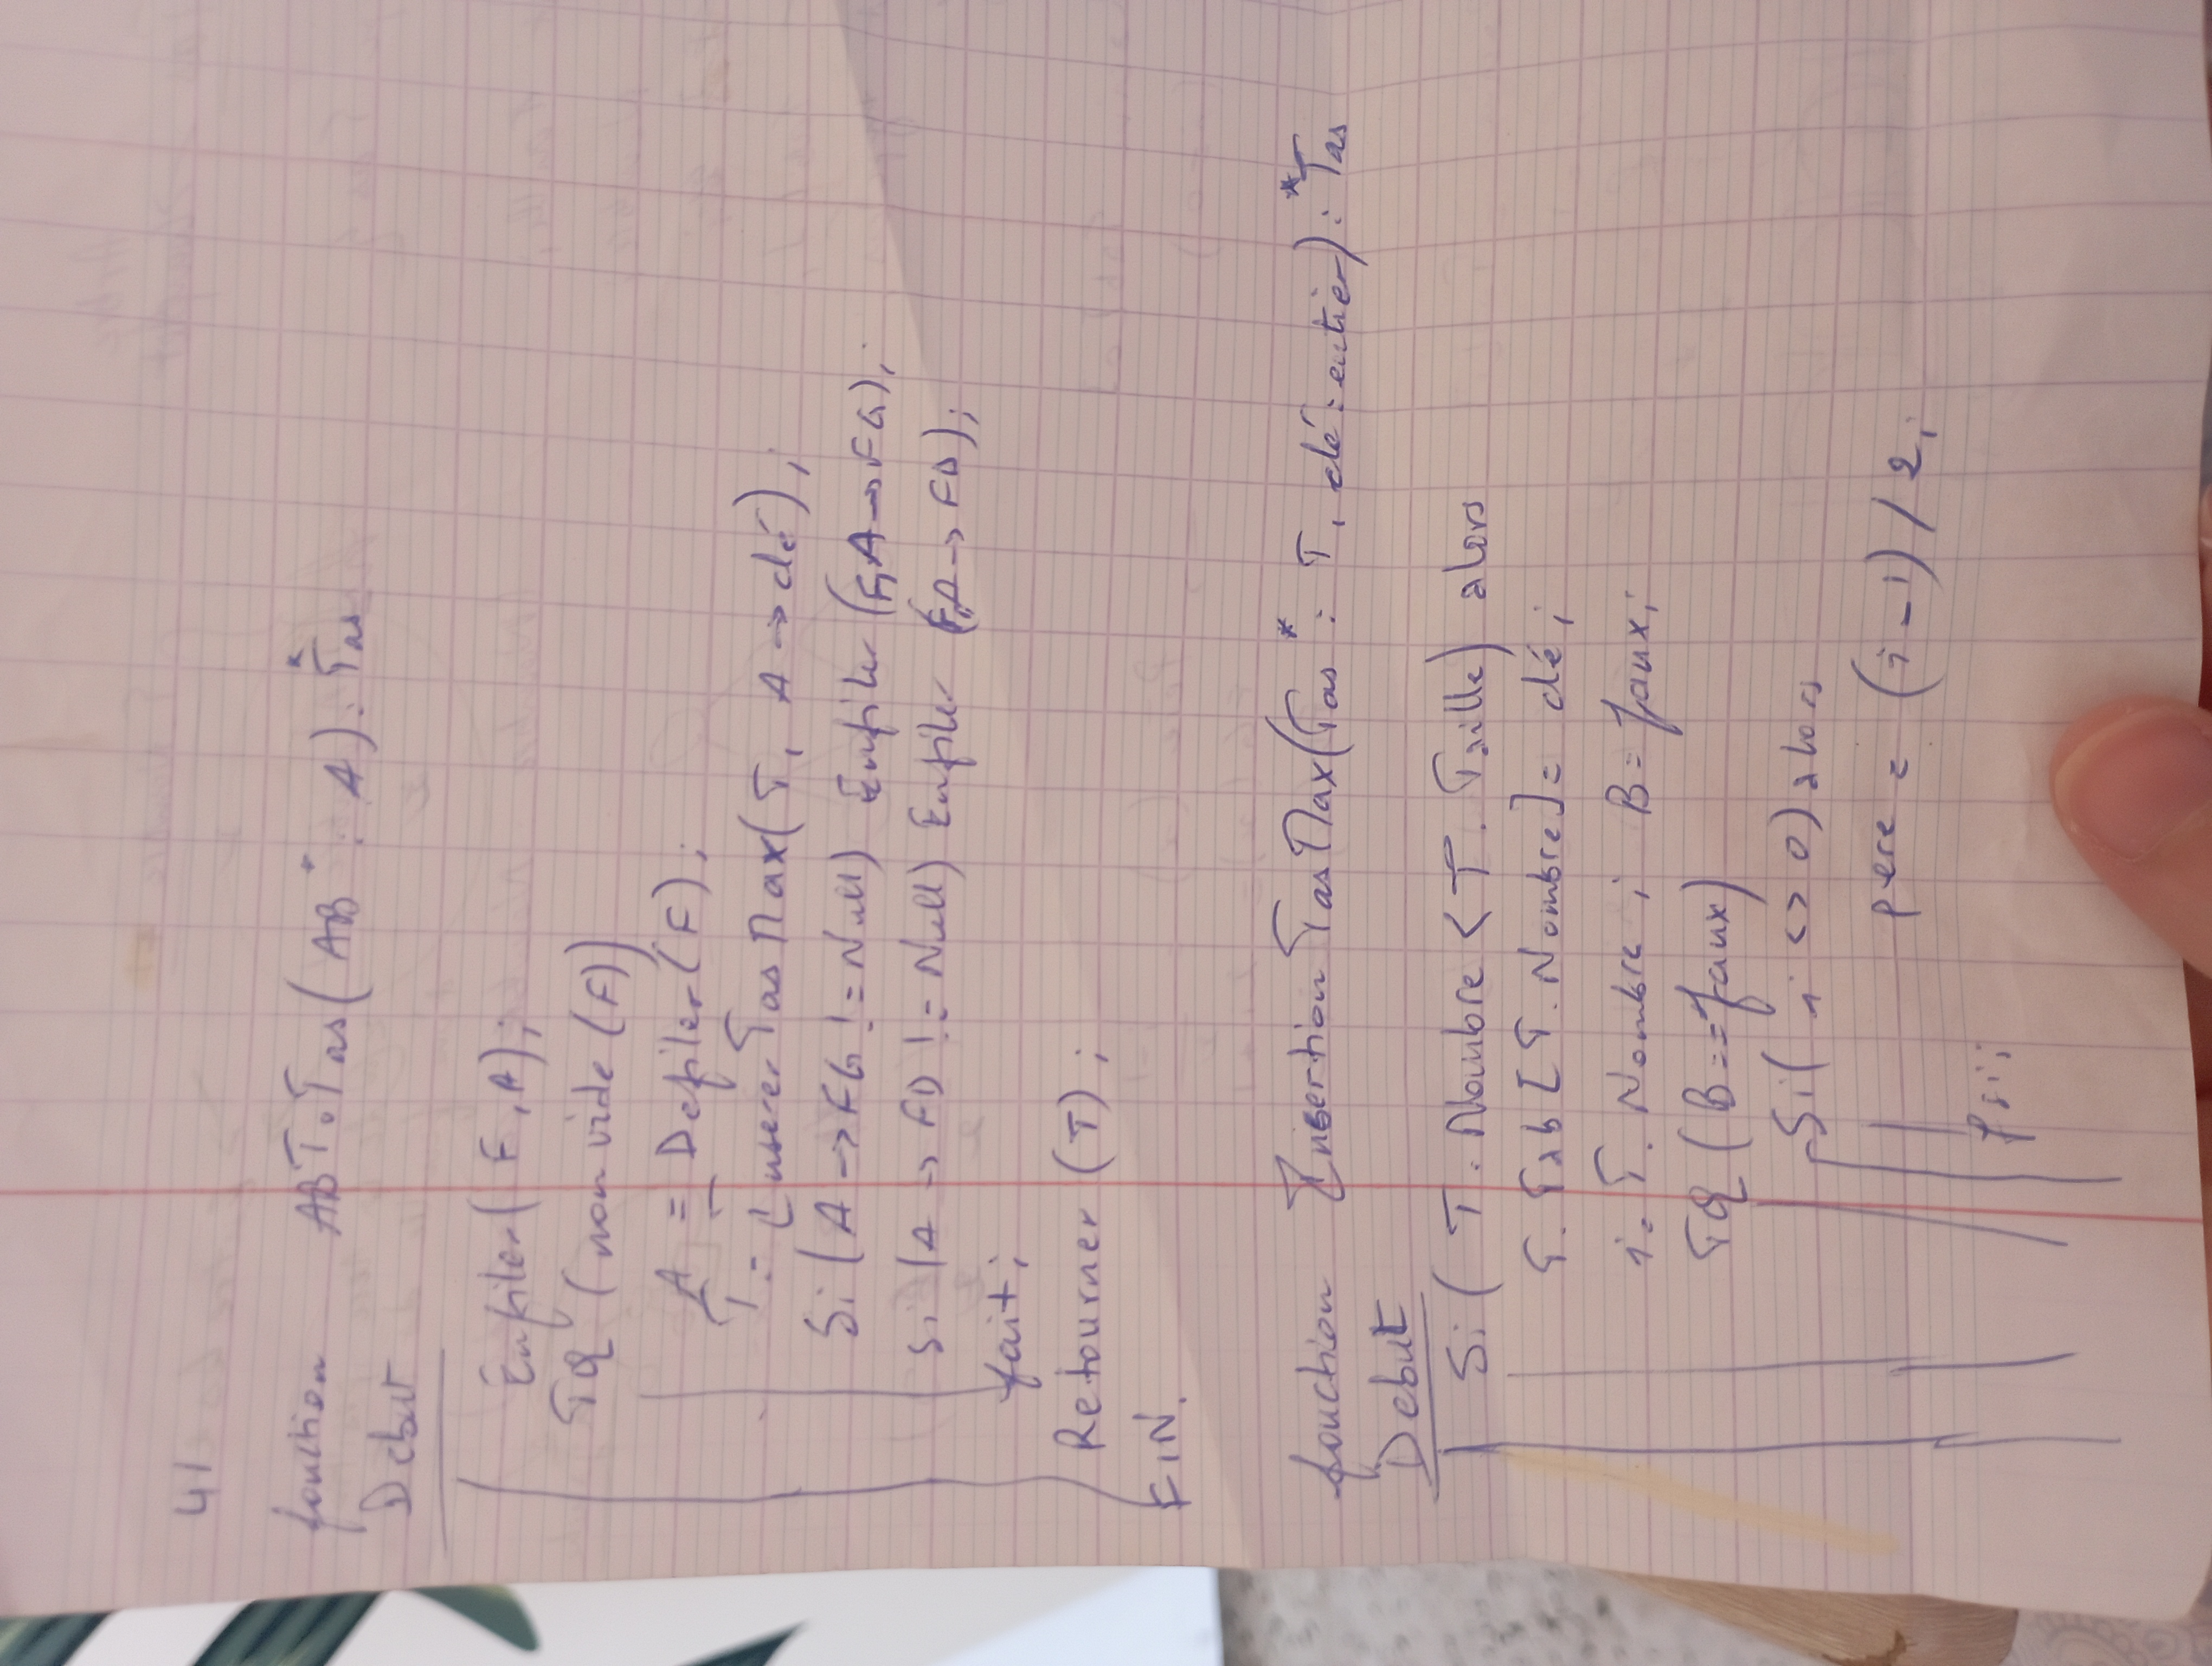 4/
fonction ABToTas(AB* : A) : *Tas
Debut
Enfiler( F, A);
TQ (non vide (F))
A = Defiler(F);
T = InsererTasMax(T, A → clé);
Si (A → FG != Null) Enfiler (F,A → FG);
Si (A → FD != Null) Enfiler (F,A → FD);
fait;
Retourner (T);
FIN.
fonction InsertionTasMax(Tas* : T, clé : entier) : *Tas
Debut
Si ( T. Nombre < T. Taille) alors
T. Tab [T. Nombre] = clé;
i = T. Nombre ; B = faux;
TQ (B == faux)
Si( i <> 0) alors
pere = (i - 1) / 2;
fsi;